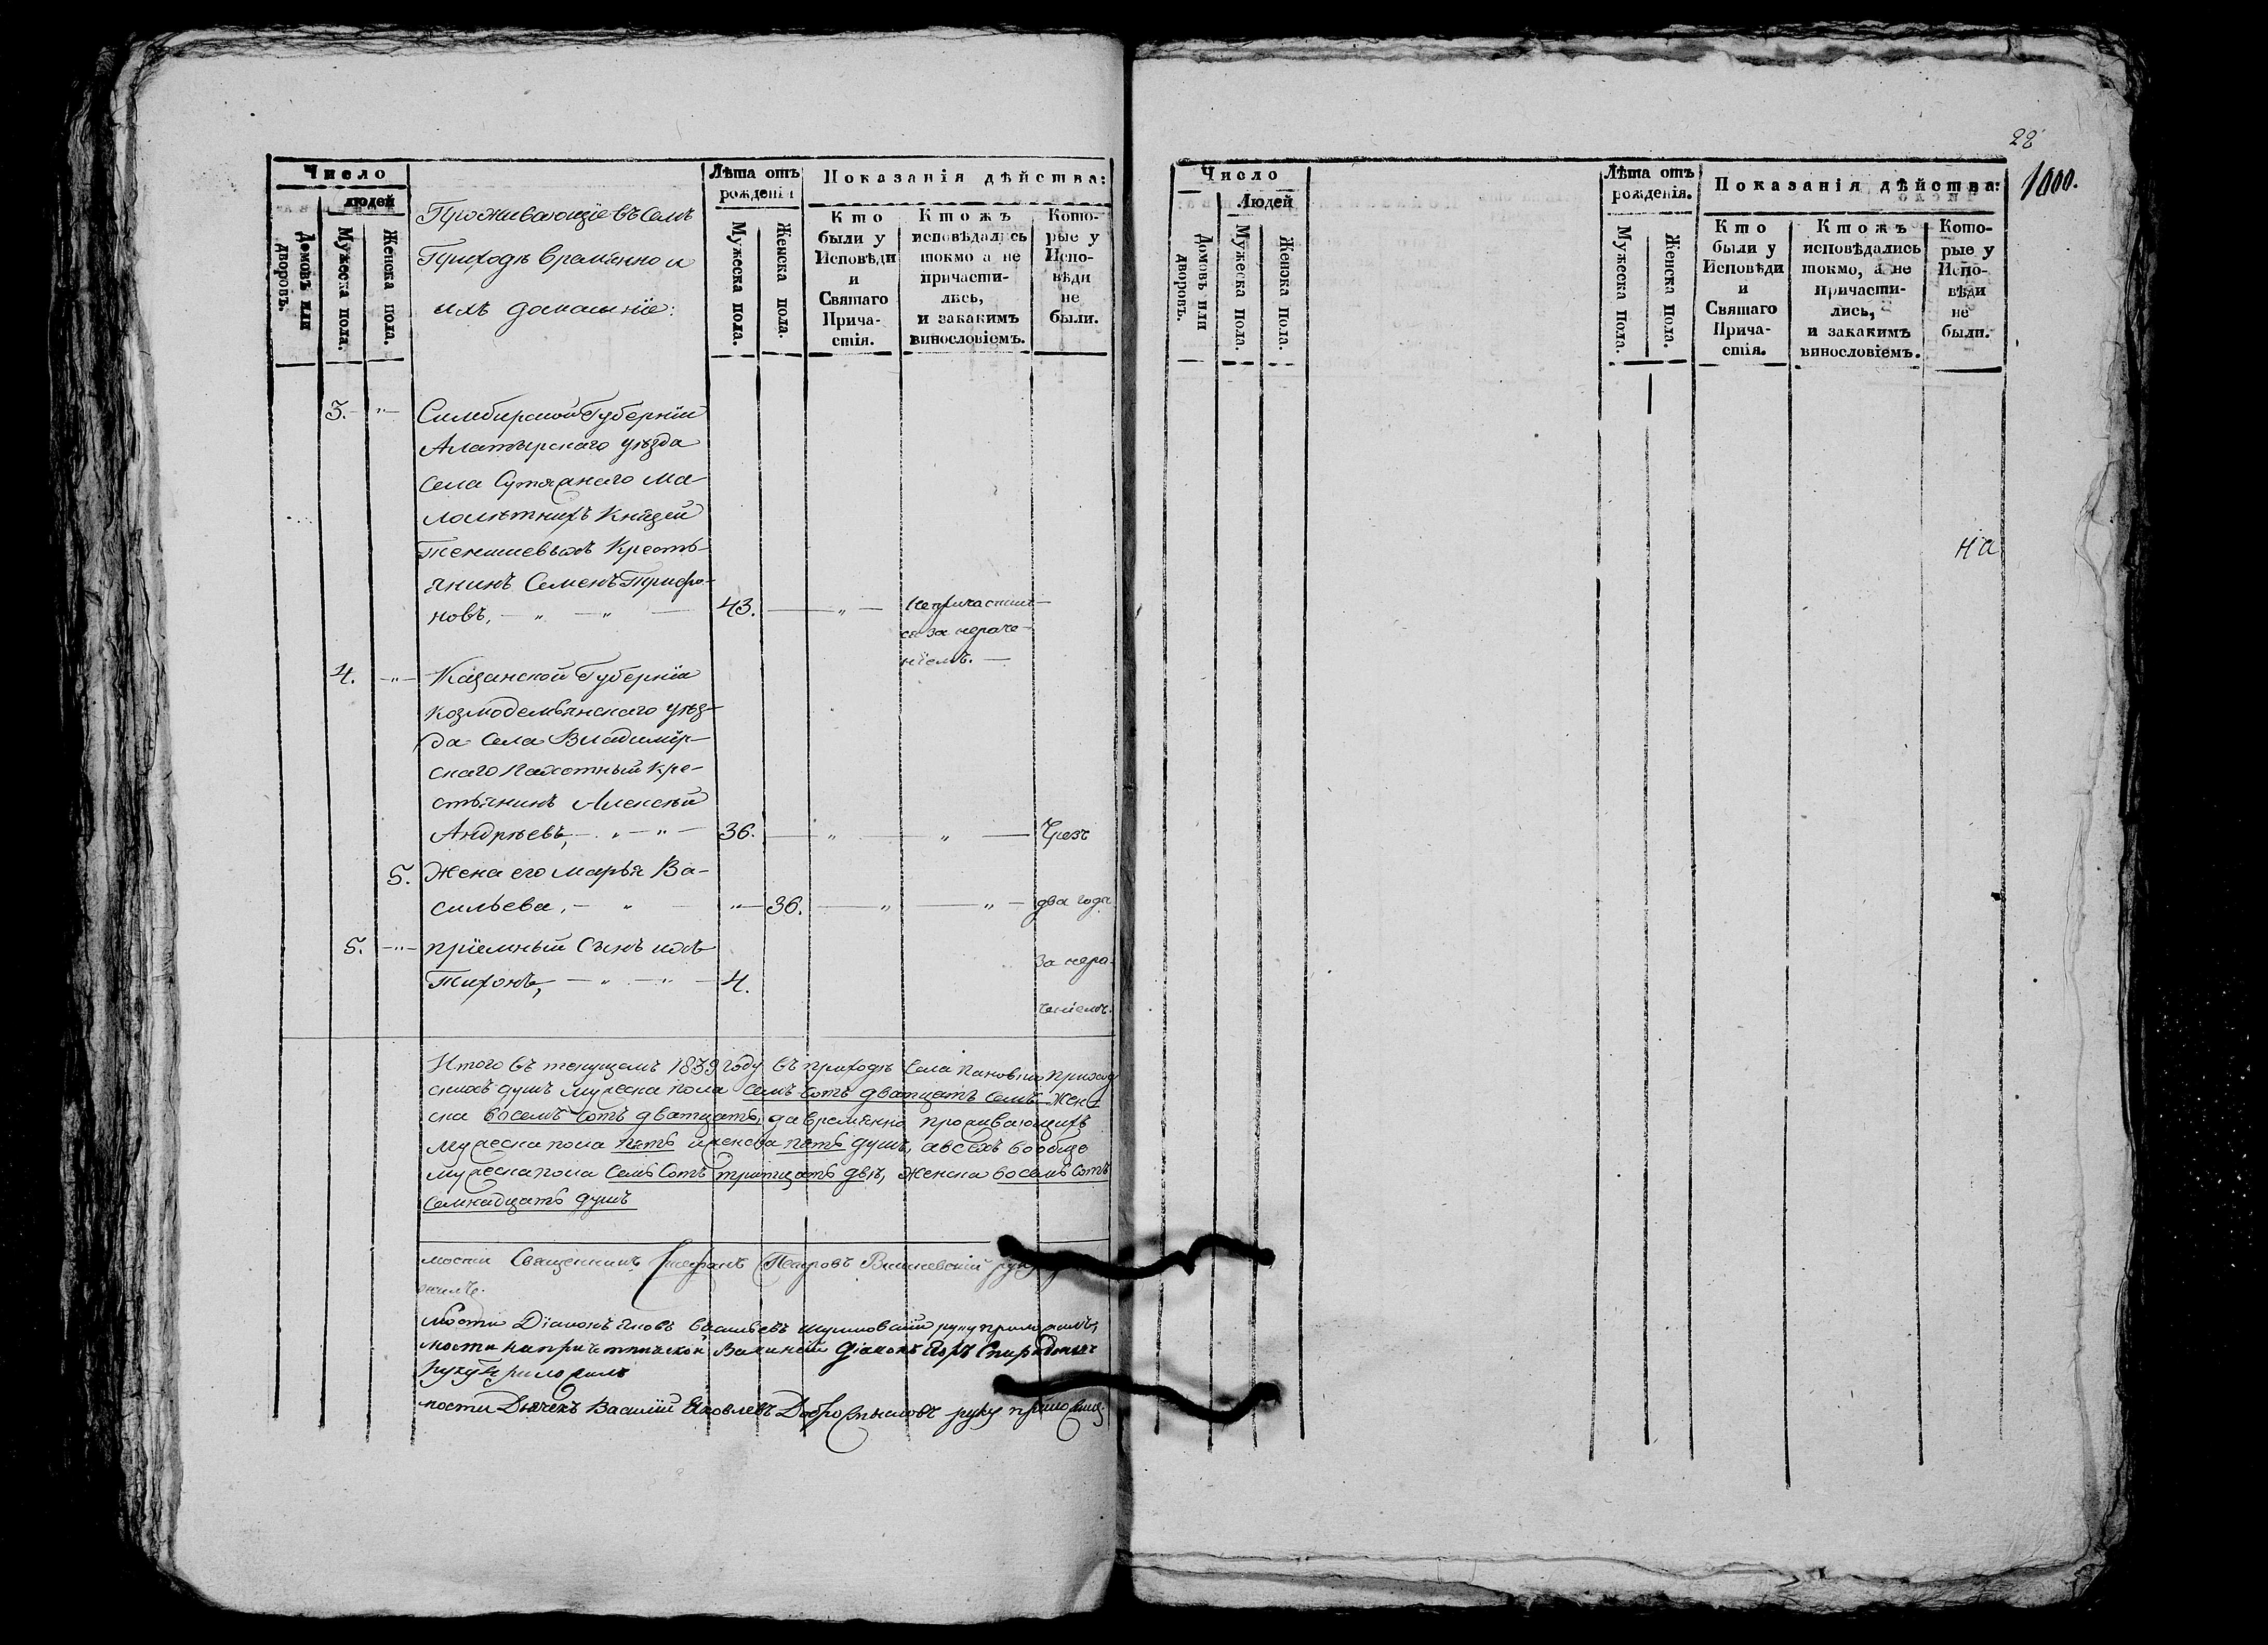 Число
людей
Домовъ или дворовъ.
Мужеска пола.
Женска пола.
Проживающіе въ семъ
Приходѣ временно и
ихъ домашніе:
Лѣта отъ
рожденія
Мужеска пола.
Женска пола.
Показанія дѣйства:
Кто
были у
Исповѣди
и
Святаго
Прича-
стія.
Ктожъ
исповѣдались
токмо а не
причасти-
лись,
и закакимъ
винословіемъ.
Кото-
рые у
Испо-
вѣди
не
были.
3. — „ — Симбирской Губерніи
Алатырскаго уѣзда
села Сутяжнаго ма-
лолѣтнихъ Князей
Тенишевыхъ Кресть-
янинъ Семенъ Трифо-
новъ, — „ — „ — 43. — „ — непричастил-
ся за нераче-
ніемъ. —
4. — „ — Казанской Губерніи
Козмодемьянскаго уѣз-
да села Владимір-
скаго Пахотный кре-
стьянинъ Алексѣй
Андрѣевъ, — „ — „ — 36. — „ — „ — Чрезъ
5. Жена его Марья Ва-
сильева, — „ — „ — 36. — „ — „ — два года
5. — „ — пріемный Сынъ ихъ за нера-
Тихонъ, — „ — „ — 4.
ченіемъ.
Итого въ текущемъ 1839 году въ приходѣ села Пановки приход
скихъ душъ мужеска пола семь сотъ дватцать семь Жен-
ска восемь сотъ дватцать, да временно проживающихъ
мужеска пола пять и женска пять душъ, а всѣхъ вообще
мужеска пола семь сотъ тритцать двѣ, женска восемь сотъ
семнадцать душъ
мости Священникъ Стефанъ Петровъ Вишневскій руку
жилъ.
мости Діаконъ Яковъ Васильевъ руку приложилъ,
мости на Діаконъ Егоръ Спиридоновъ
руку приложилъ
мости Дьячекъ Василій Яковлевъ Добросмысловъ руку приложилъ.
28
1000.
Число
Людей
Домовъ или дворовъ.
Мужеска пола.
Женска пола.
Лѣта отъ
рожденія.
Мужеска пола.
Женска пола.
Показанія дѣйства:
Кто
были у
Исповѣди
и
Святаго
Прича-
стія.
Ктожъ
исповѣдались
токмо, а не
причасти-
лись,
и закакимъ
винословіемъ.
Кото-
рые у
Испо-
вѣди
не
были.
на